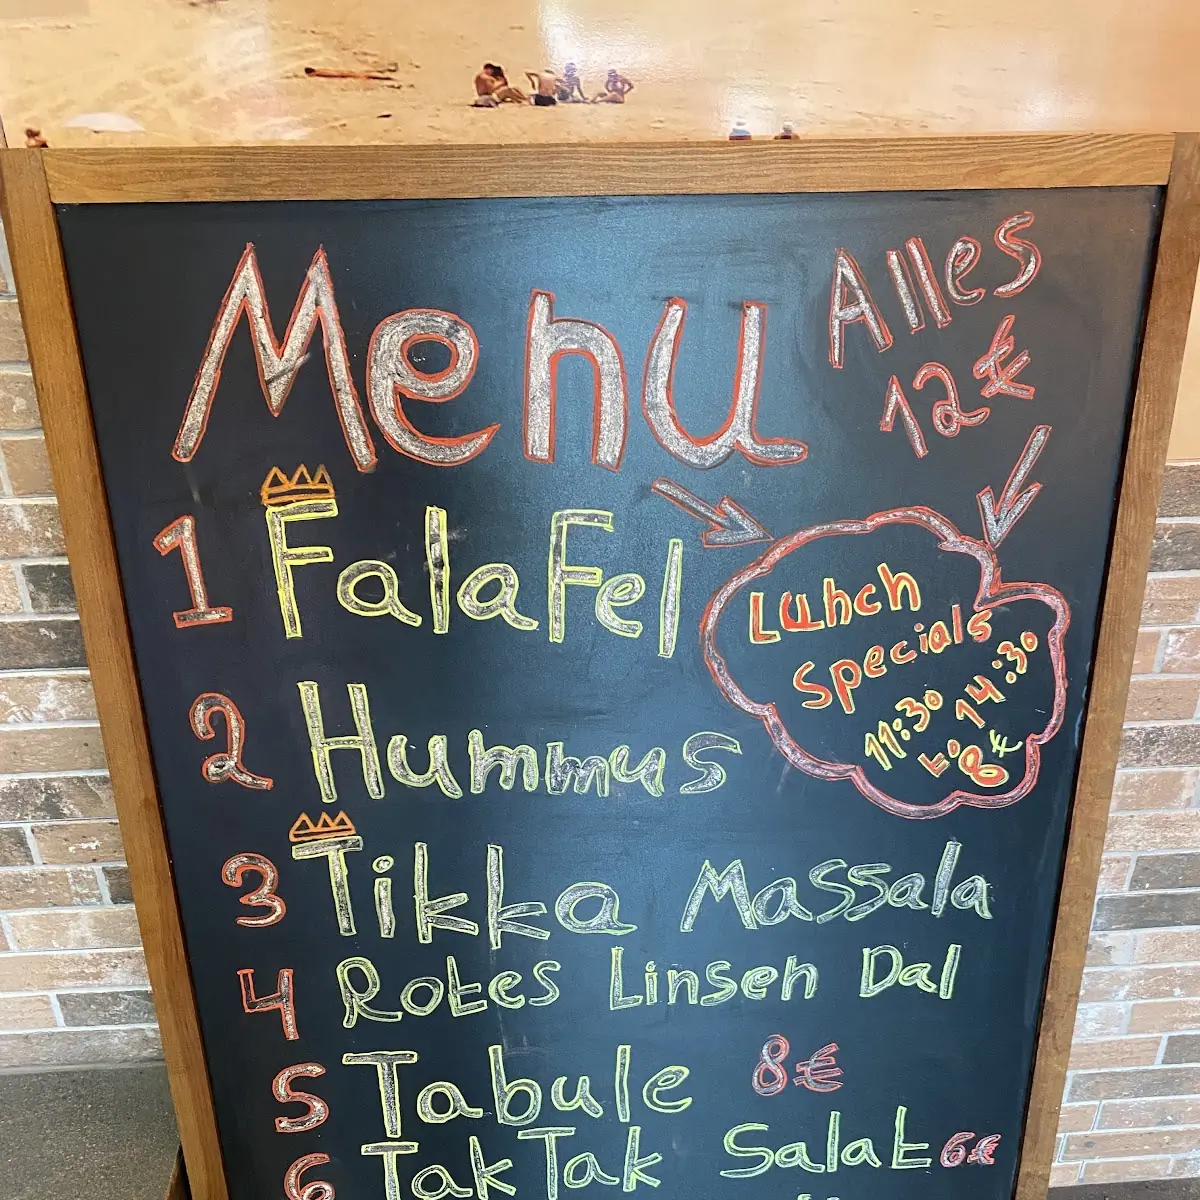 Menu
Alles
12 €
1 FalaFel
Lunch
Specials
11:30 14:30
t:8 €
2 Hummus
3 Tikka Massala
4 Rotes Linsen Dal
5 Tabule 8€
6 TakTak Salat 6€